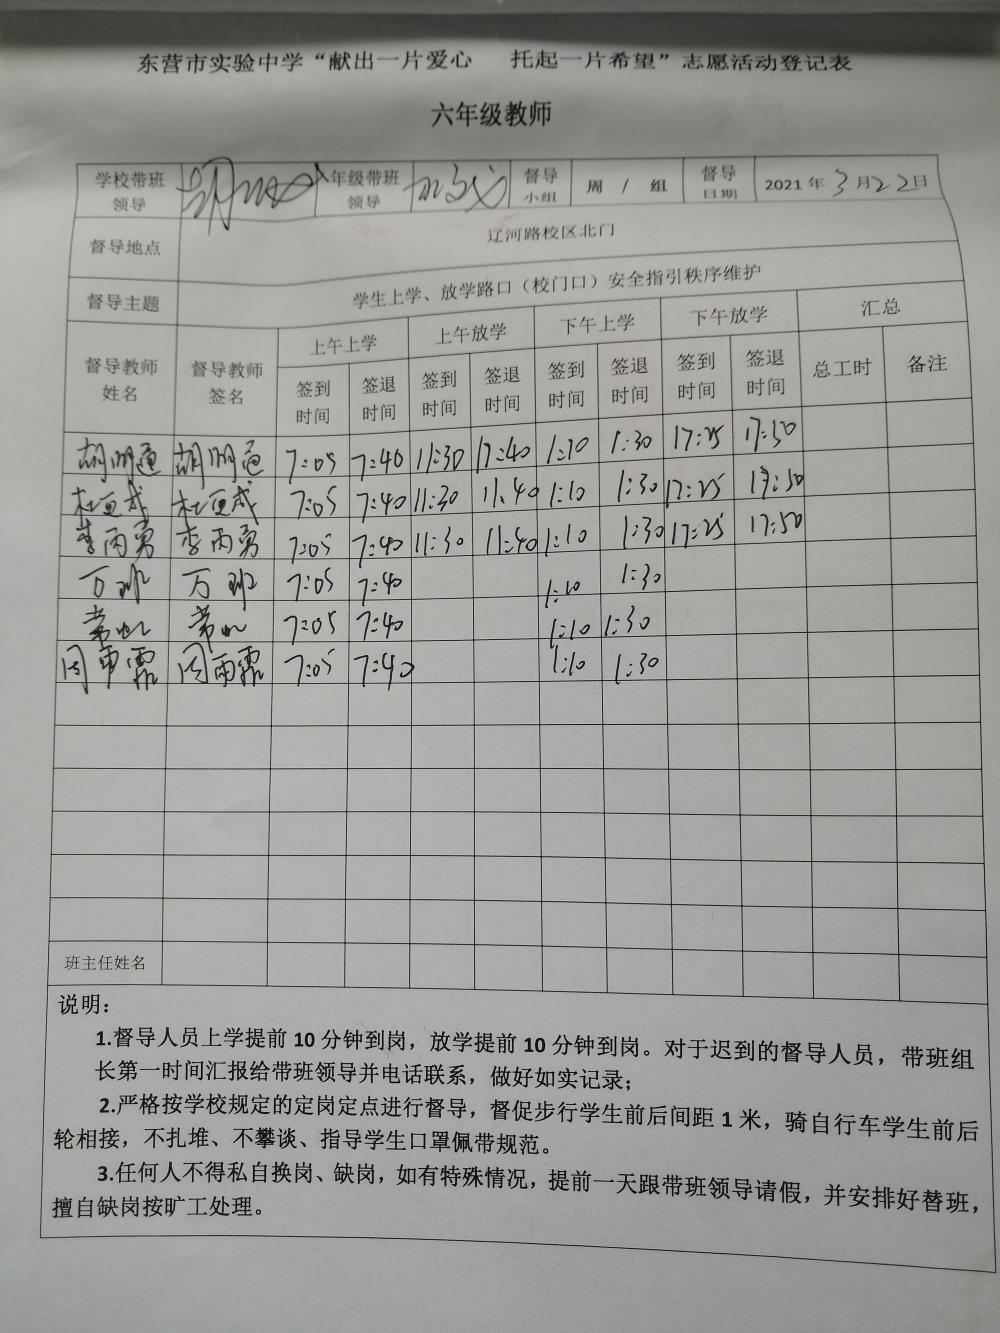 东营市实验中学“献出一片爱心 托起一片希望”志愿活动登记表
六年级教师
学校带班领导 年级带班领导 督导小组 周 / 组 督导日期 2021年3月22日
督导地点 辽河路校区北门
督导主题 学生上学、放学路口（校门口）安全指引秩序维护
督导教师姓名 督导教师签名 上午上学 上午放学 下午上学 下午放学 汇总
签到时间 签退时间 签到时间 签退时间 签到时间 签退时间 签到时间 签退时间 总工时 备注
胡明通 胡明通 7:05 7:40 11:30 17:40 1:10 1:30 17:25 17:50
杜亚成 杜亚成 7:05 7:40 11:30 11:40 1:10 1:30 17:25 17:50
李丙勇 李丙勇 7:05 7:40 11:30 11:40 1:10 1:30 17:25 17:50
万班 万班 7:05 7:40 1:10 1:30
常 常 7:05 7:40 1:10 1:30
周雨霏 周雨霏 7:05 7:40 1:10 1:30
班主任姓名
说明：
1.督导人员上学提前10分钟到岗，放学提前10分钟到岗。对于迟到的督导人员，带班组
长第一时间汇报给带班领导并电话联系，做好如实记录；
2.严格按学校规定的定岗定点进行督导，督促步行学生前后间距1米，骑自行车学生前后
轮相接，不扎堆、不攀谈、指导学生口罩佩带规范。
3.任何人不得私自换岗、缺岗，如有特殊情况，提前一天跟带班领导请假，并安排好替班，
擅自缺岗按旷工处理。